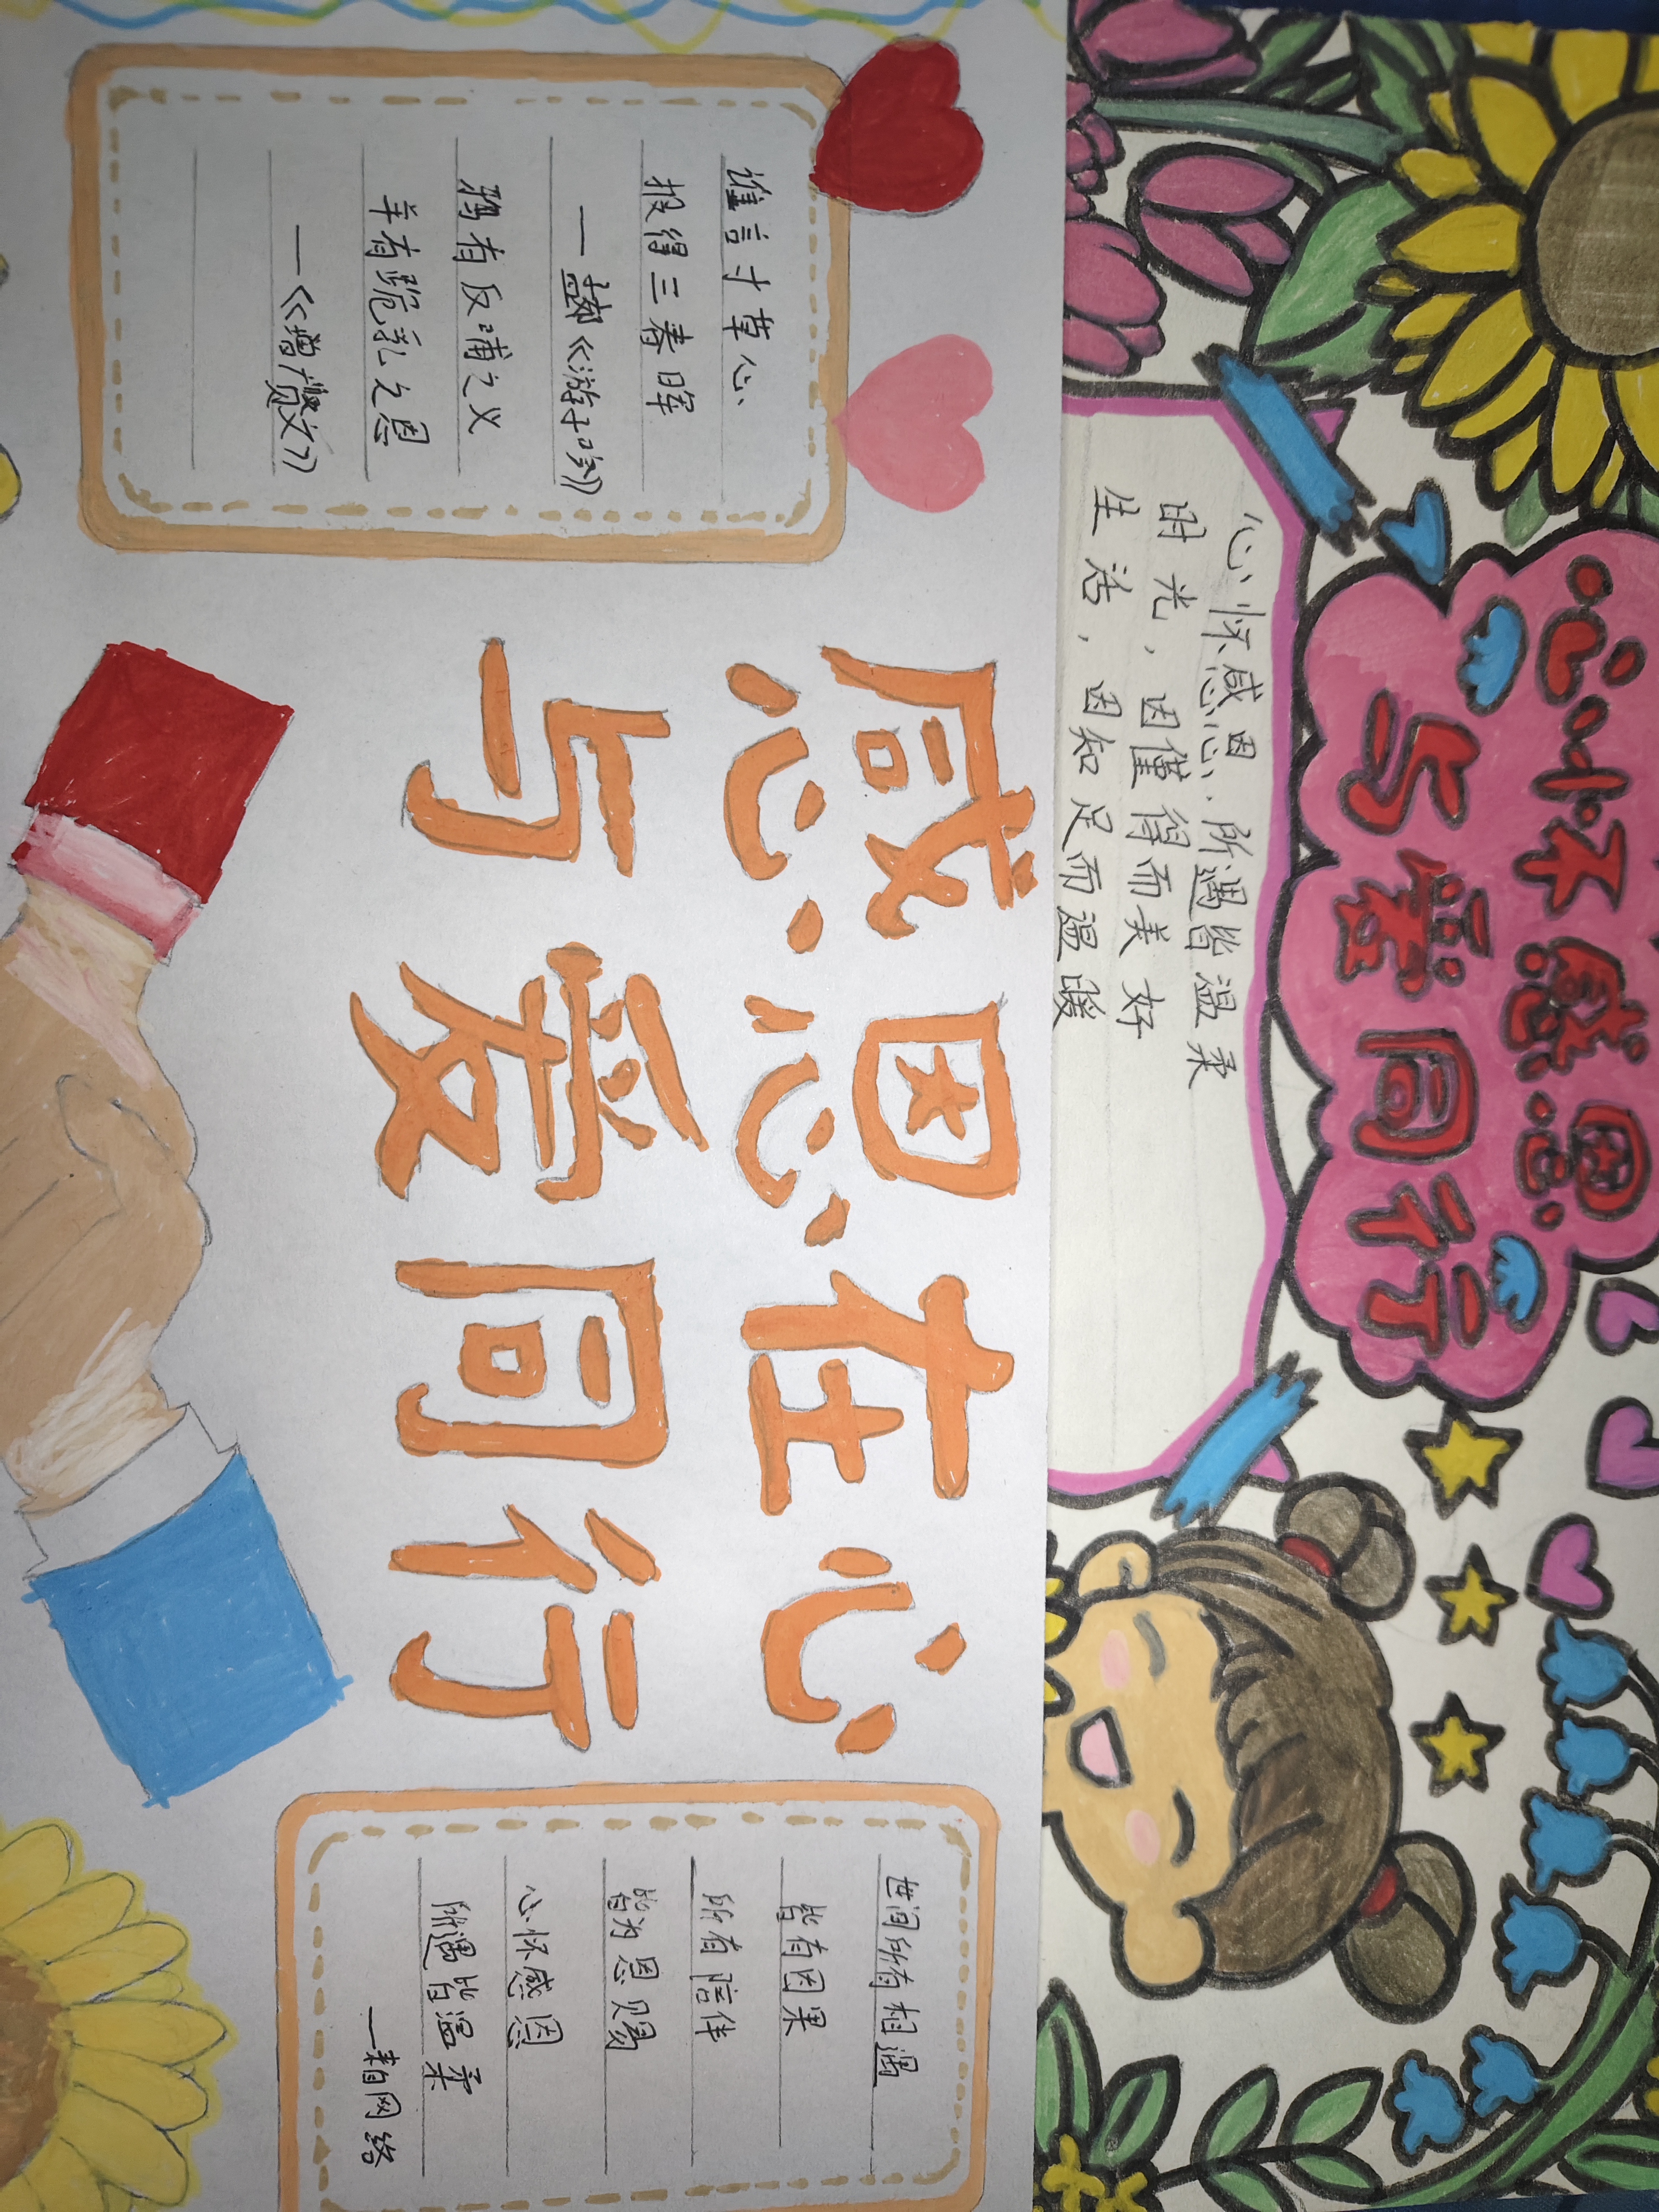 心怀感恩
与爱同行
心怀感恩.所遇皆温柔
时光，因懂得而美好
生活，因知足而温暖
感因在心
恩
与爱同行
谁言寸草心
报得三春晖
——孟郊《游子吟》
鸦有反哺之义
羊有跪乳之恩
——《增广贤文》
世间所有相遇
皆有因果
所有陪伴
皆为恩赐
心怀感恩
所遇皆温柔
——来自网络